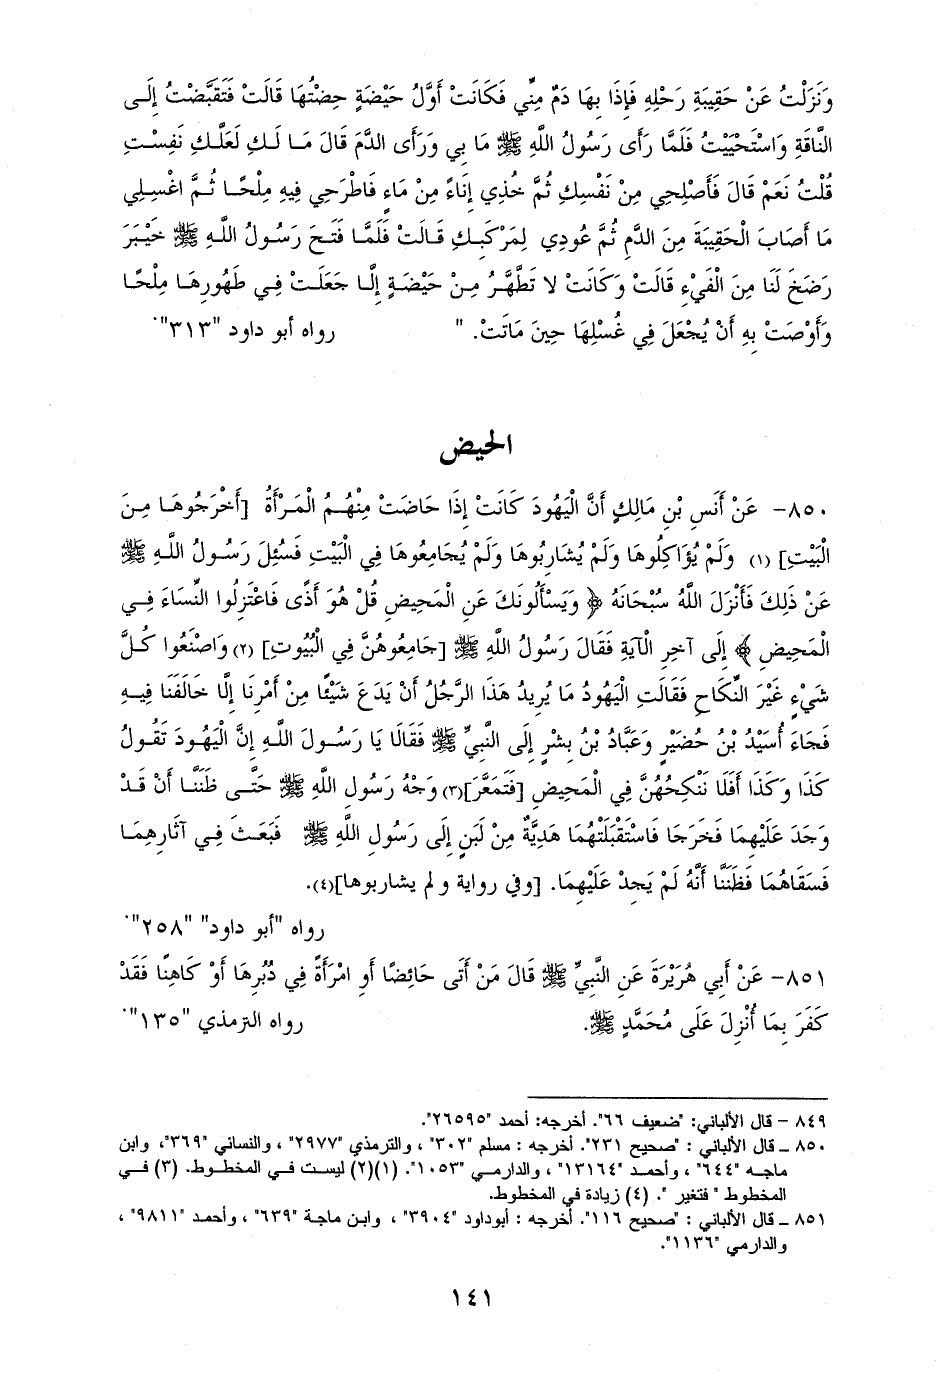 وَنَزَلْتُ عَنْ حَقِيبَةِ رَحْلِهِ فَإِذَا بِهَا دَمٌ مِنِّي فَكَانَتْ أَوَّلُ حَيْضَةٍ حِضْتُهَا قَالَتْ فَتَقَبَّضْتُ إِلَى
النَّاقَةِ وَاسْتَحْيَيْتُ فَلَمَّا رَأَى رَسُولُ اللَّهِ ﷺ مَا بِي وَرَأَى الدَّمَ قَالَ مَا لَكِ لَعَلَّكِ نَفِسْتِ
قُلْتُ نَعَمْ قَالَ فَأَصْلِحِي مِنْ نَفْسِكِ ثُمَّ خُذِي إِنَاءً مِنْ مَاءٍ فَاطْرَحِي فِيهِ مِلْحًا ثُمَّ اغْسِلِي
مَا أَصَابَ الْحَقِيبَةَ مِنَ الدَّمِ ثُمَّ عُودِي لِمَرْكَبِكِ قَالَتْ فَلَمَّا فَتَحَ رَسُولُ اللَّهِ ﷺ خَيْبَرَ
رَضَخَ لَنَا مِنَ الْفَيْءِ قَالَتْ وَكَانَتْ لا تَطَّهَّرُ مِنْ حَيْضَةٍ إِلَّا جَعَلَتْ فِي طَهُورِهَا مِلْحًا
وَأَوْصَتْ بِهِ أَنْ يُجْعَلَ فِي غُسْلِهَا حِينَ مَاتَتْ. " رواه أبو داود "٣١٣".
الحيض
٨٥٠- عَنْ أَنَسِ بْنِ مَالِكٍ أَنَّ الْيَهُودَ كَانَتْ إِذَا حَاضَتْ مِنْهُمُ الْمَرْأَةُ [أَخْرَجُوهَا مِنَ
الْبَيْتِ] (١) وَلَمْ يُؤَاكِلُوهَا وَلَمْ يُشَارِبُوهَا وَلَمْ يُجَامِعُوهَا فِي الْبَيْتِ فَسُئِلَ رَسُولُ اللَّهِ ﷺ
عَنْ ذَلِكَ فَأَنْزَلَ اللَّهُ سُبْحَانَهُ ﴿ وَيَسْأَلُونَكَ عَنِ الْمَحِيضِ قُلْ هُوَ أَذًى فَاعْتَزِلُوا النِّسَاءَ فِي
الْمَحِيضِ ﴾ إِلَى آخِرِ الْآيَةِ فَقَالَ رَسُولُ اللَّهِ ﷺ [جَامِعُوهُنَّ فِي الْبُيُوتِ] (٢) وَاصْنَعُوا كُلَّ
شَيْءٍ غَيْرَ النِّكَاحِ فَقَالَتِ الْيَهُودُ مَا يُرِيدُ هَذَا الرَّجُلُ أَنْ يَدَعَ شَيْئًا مِنْ أَمْرِنَا إِلَّا خَالَفَنَا فِيهِ
فَجَاءَ أُسَيْدُ بْنُ حُضَيْرٍ وَعَبَّادُ بْنُ بِشْرٍ إِلَى النَّبِيِّ ﷺ فَقَالَا يَا رَسُولَ اللَّهِ إِنَّ الْيَهُودَ تَقُولُ
كَذَا وَكَذَا أَفَلَا نَنْكِحُهُنَّ فِي الْمَحِيضِ [فَتَمَعَّرَ](٣) وَجْهُ رَسُولِ اللَّهِ ﷺ حَتَّى ظَنَنَّا أَنْ قَدْ
وَجَدَ عَلَيْهِمَا فَخَرَجَا فَاسْتَقْبَلَتْهُمَا هَدِيَّةٌ مِنْ لَبَنٍ إِلَى رَسُولِ اللَّهِ ﷺ فَبَعَثَ فِي آثَارِهِمَا
فَسَقَاهُمَا فَظَنَنَّا أَنَّهُ لَمْ يَجِدْ عَلَيْهِمَا. [وفي رواية و لم يشاربوها](٤).
رواه "أبو داود" "٢٥٨".
٨٥١- عَنْ أَبِي هُرَيْرَةَ عَنِ النَّبِيِّ ﷺ قَالَ مَنْ أَتَى حَائِضًا أَوِ امْرَأَةً فِي دُبُرِهَا أَوْ كَاهِنًا فَقَدْ
كَفَرَ بِمَا أُنْزِلَ عَلَى مُحَمَّدٍ ﷺ. رواه الترمذي "١٣٥".
٨٤٩ – قال الألباني: "ضعيف ٦٦". أخرجه: أحمد "٢٦٥٩٥".
٨٥٠ – قال الألباني : "صحيح ٢٣١". أخرجه : مسلم "٣٠٢" ، والترمذي "٢٩٧٧" ، والنسائي "٣٦٩"، وابن
ماجه "٦٤٤" ، وأحمد "١٣١٦٤" ، والدارمي "١٠٥٣". (١)(٢) ليست في المخطوط. (٣) في
المخطوط " فتغير ". (٤) زيادة في المخطوط.
٨٥١ – قال الألباني : "صحيح ١١٦". أخرجه : أبوداود "٣٩٠٤" ، وابن ماجة "٦٣٩" ، وأحمد "٩٨١١" ،
والدارمي "١١٣٦".
١٤١